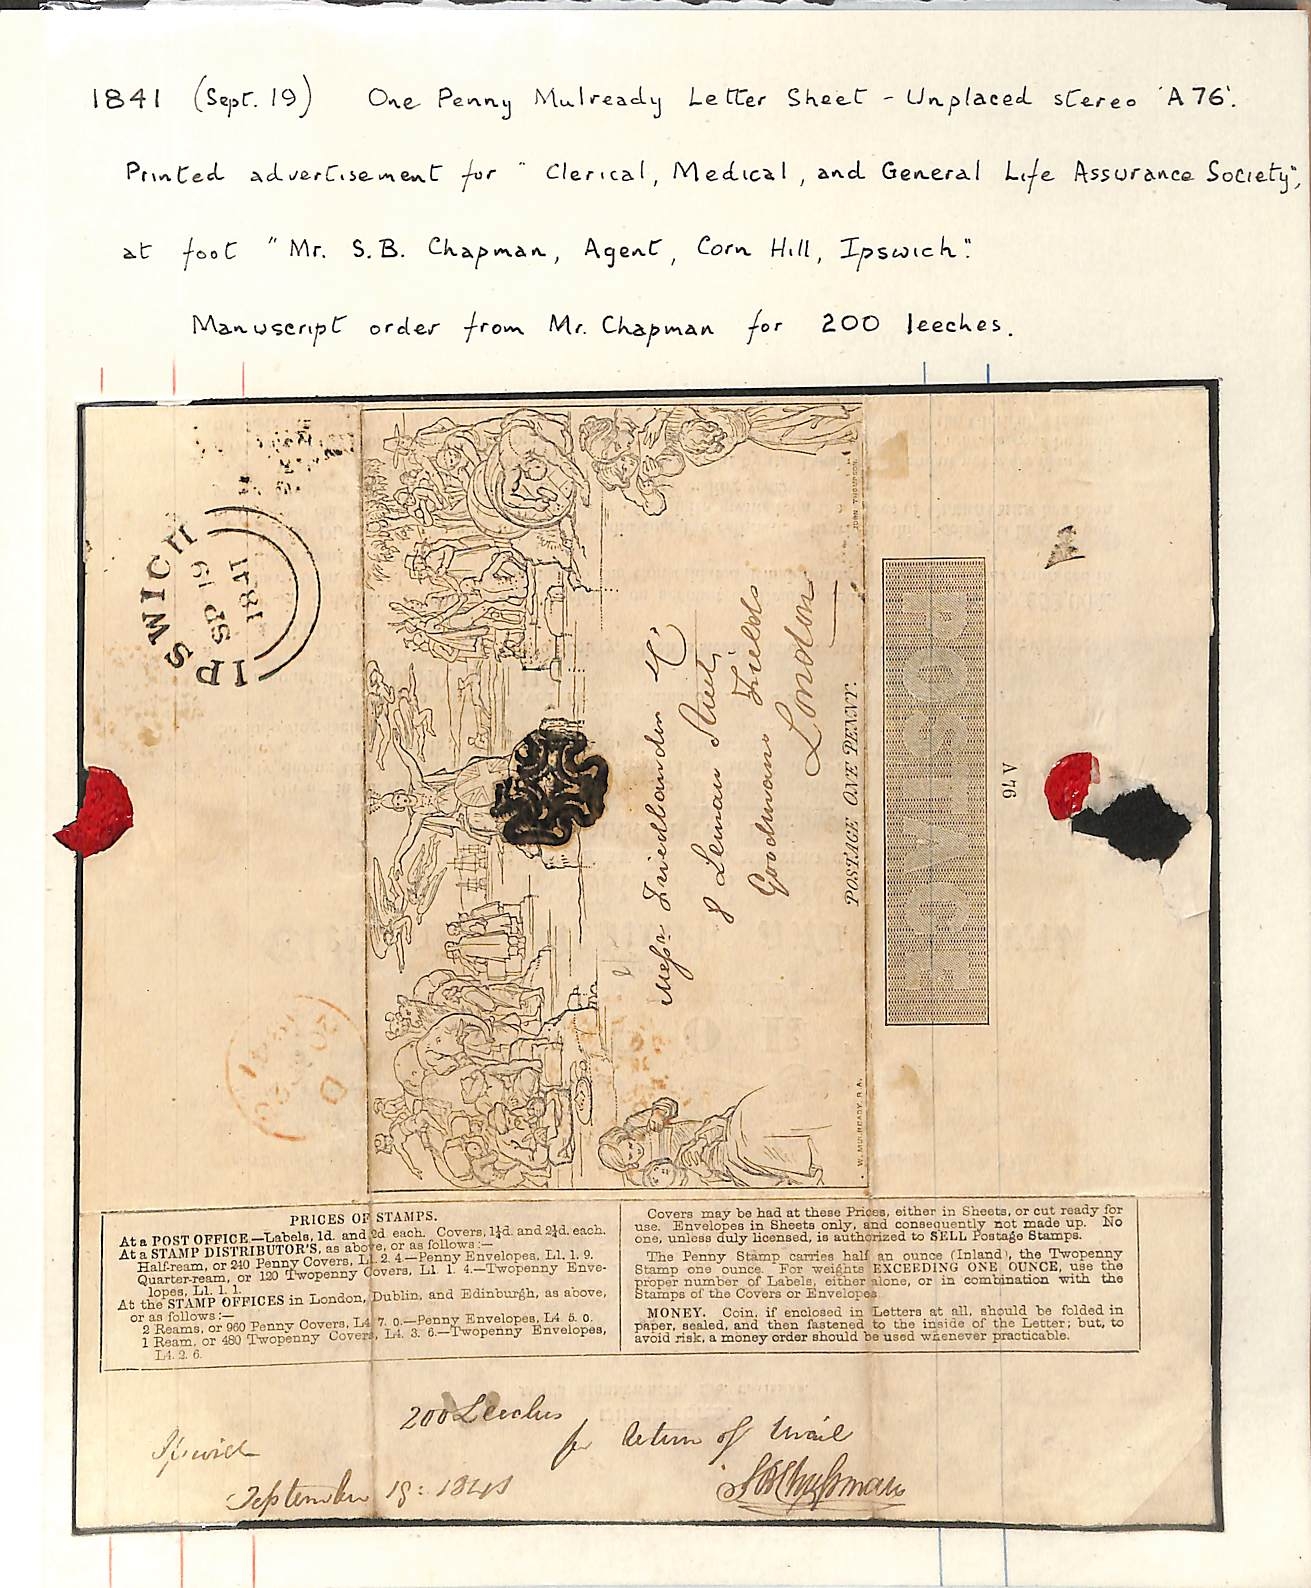 1841 (Sept. 19) One Penny Mulready Letter Sheet - Unplaced stereo 'A76'.
Printed advertisement for "Clerical, Medical, and General Life Assurance Society",
at foot "Mr. S.B. Chapman, Agent, Corn Hill, Ipswich".
Manuscript order from Mr. Chapman for 200 leeches.
IPSWICH
SP 19
1841
JOHN THOMPSON
Messrs Friedlander & Co
8 Leman Street
Goodmans Fields
London
POSTAGE ONE PENNY.
W. MULREADY. R.A.
POSTAGE
A 76
D
20
1841
PRICES OF STAMPS.
At a POST OFFICE.—Labels, 1d. and 2d. each. Covers, 1¼d. and 2¼d. each.
At a STAMP DISTRIBUTOR'S, as above, or as follows:—
Half-ream, or 240 Penny Covers, L1. 2. 4.—Penny Envelopes, L1. 1. 9.
Quarter-ream, or 120 Twopenny Covers, L1. 1. 4.—Twopenny Enve-
lopes, L1. 1. 1.
At the STAMP OFFICES in London, Dublin, and Edinburgh, as above,
or as follows:—
2 Reams, or 960 Penny Covers, L4. 7. 0.—Penny Envelopes, L4. 5. 0.
1 Ream, or 480 Twopenny Covers, L4. 3. 6.—Twopenny Envelopes,
L4. 2. 6.
Covers may be had at these Prices, either in Sheets, or cut ready for
use. Envelopes in Sheets only, and consequently not made up. No
one, unless duly licensed, is authorized to SELL Postage Stamps.
The Penny Stamp carries half an ounce (Inland), the Twopenny
Stamp one ounce. For weights EXCEEDING ONE OUNCE, use the
proper number of Labels, either alone, or in combination with the
Stamps of the Covers or Envelopes.
MONEY. Coin, if enclosed in Letters at all, should be folded in
paper, sealed, and then fastened to the inside of the Letter; but, to
avoid risk, a money order should be used whenever practicable.
200 Leeches
per Return of Mail
Ipswich
September 19: 1841
S B Chapman